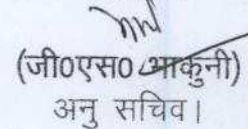 (जी0एस0 आर्कुनी)
अनु सचिव।